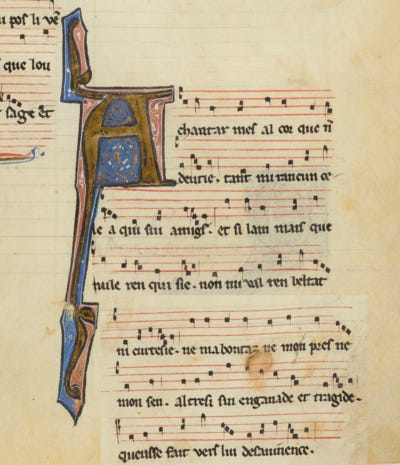 u pos li vē
s que lou
t sage et
A chantar mes al cor que n̄
deurie. tant mi rancun ce
le a qui sui amigs. et si lam mais que
nule ren qui sie. non mi val ren beltat
ni curtesie. ne ma bontaz ne mon pres ne
mon sen. altresi sui enganade et tragide.
queusse fait vers lui desauinence.